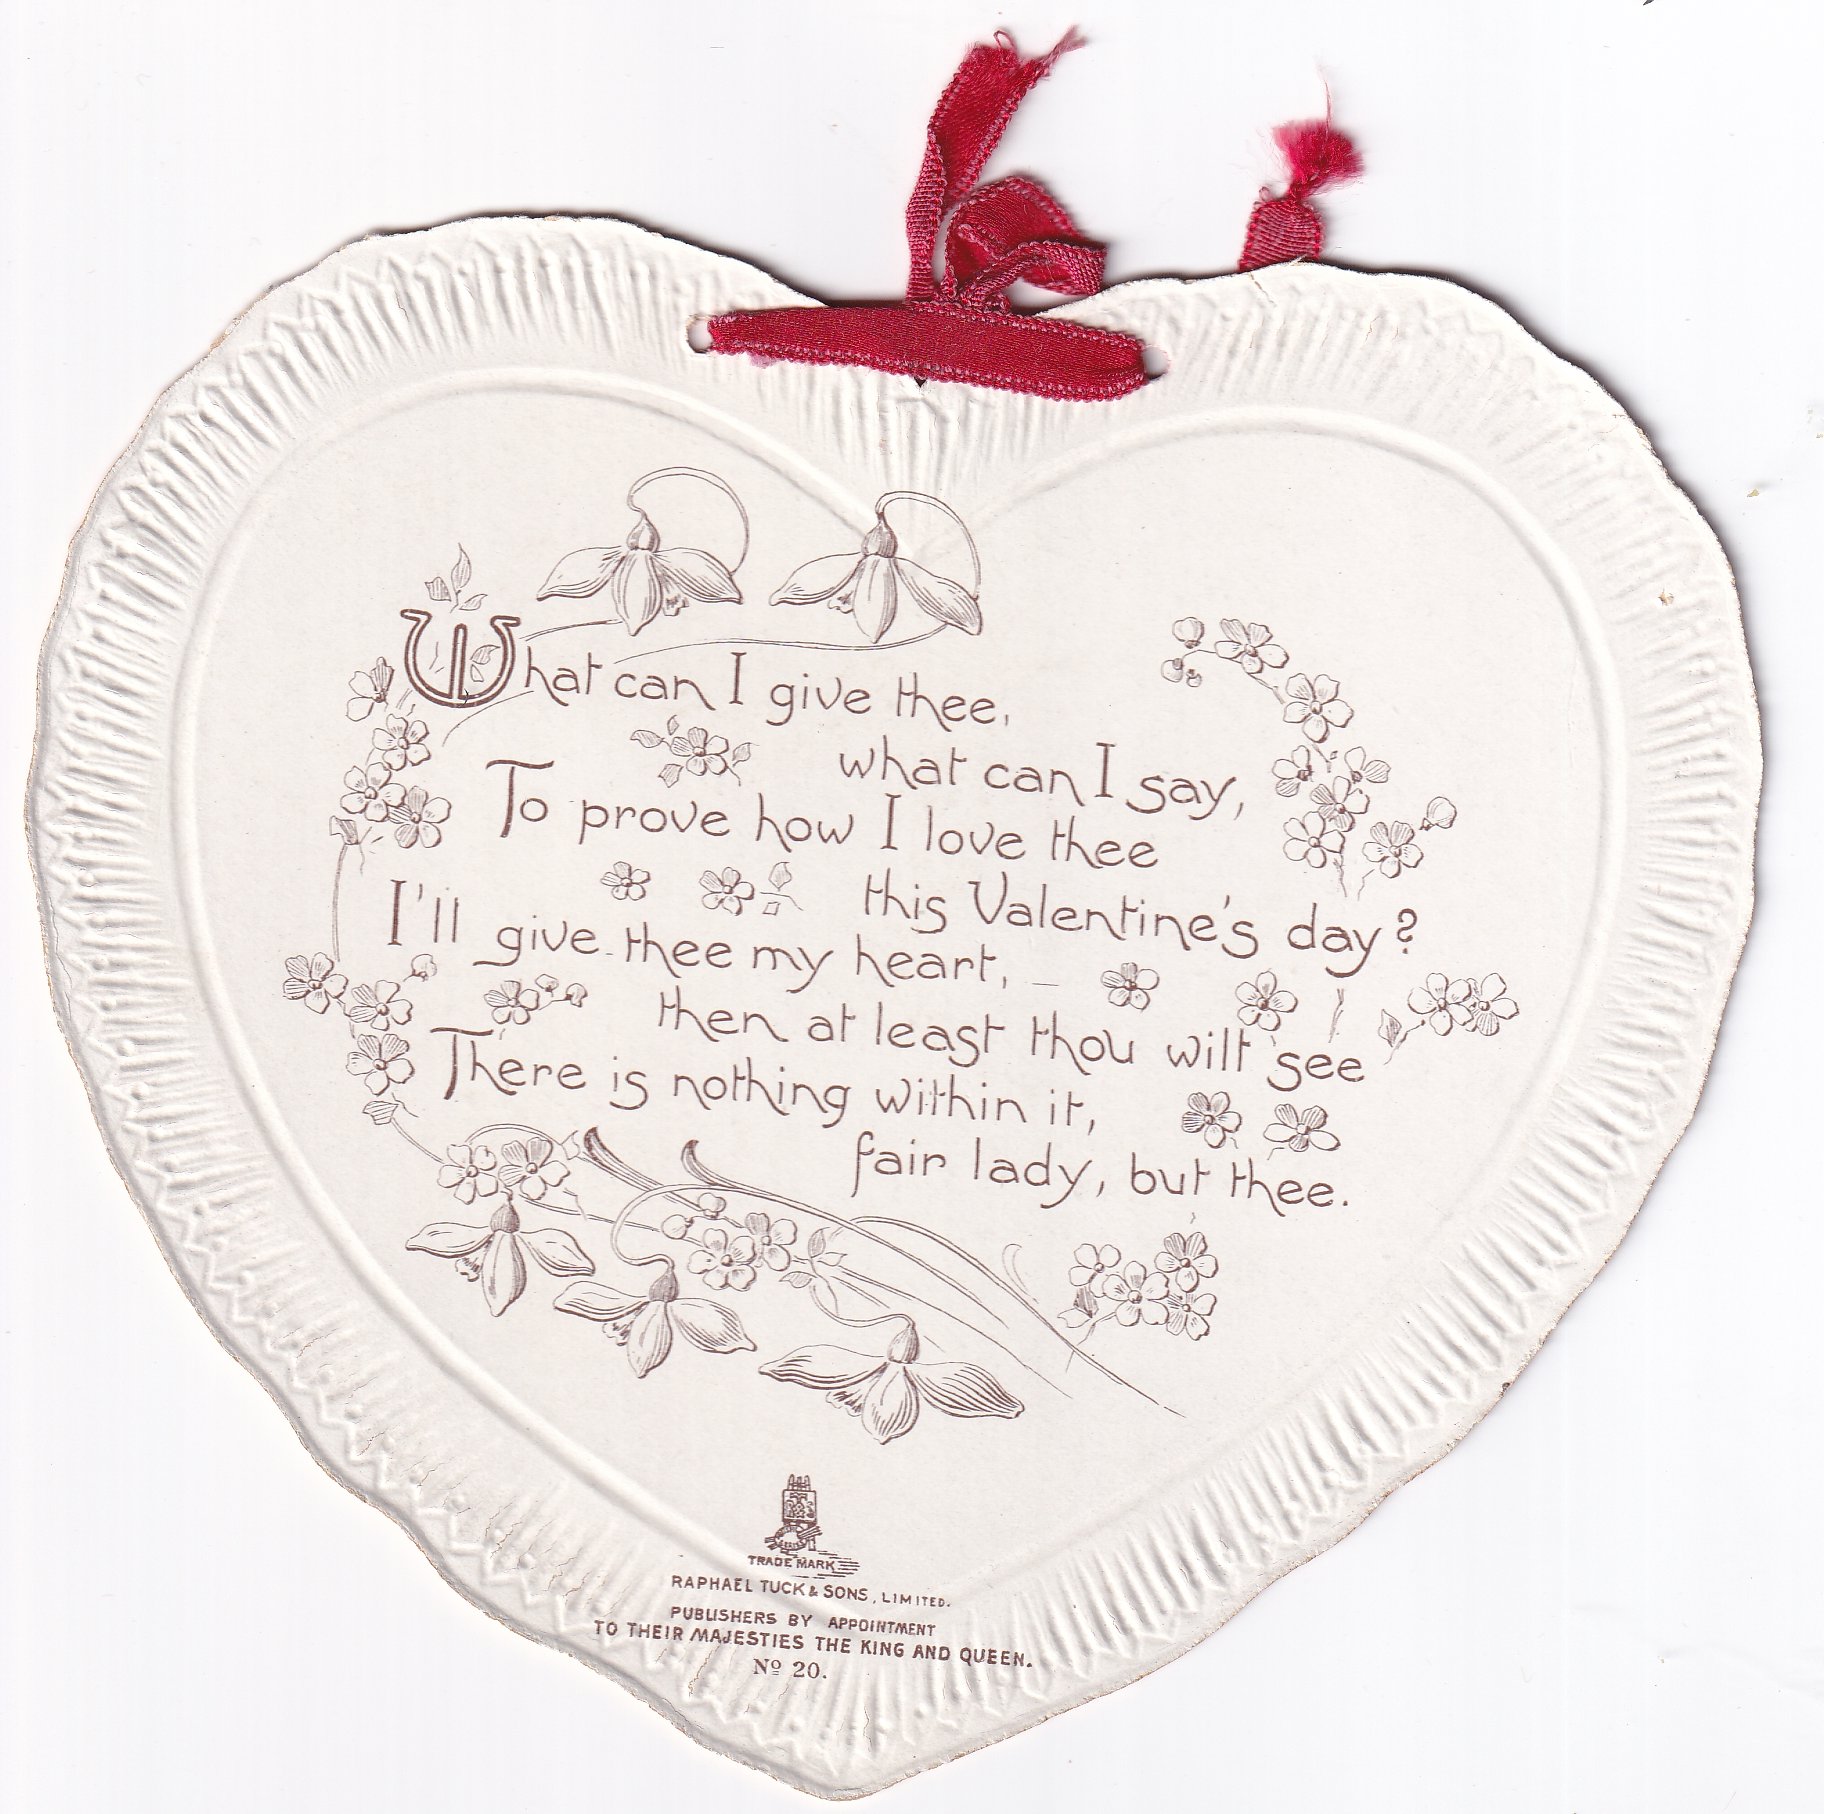 What can I give thee,
what can I say,
To prove how I love thee
this Valentine's day?
I'll give thee my heart, –
then at least thou wilt see
There is nothing within it,
fair lady, but thee.
TRADE MARK
RAPHAEL TUCK & SONS, LIMITED.
PUBLISHERS BY APPOINTMENT
TO THEIR MAJESTIES THE KING AND QUEEN.
Nº 20.